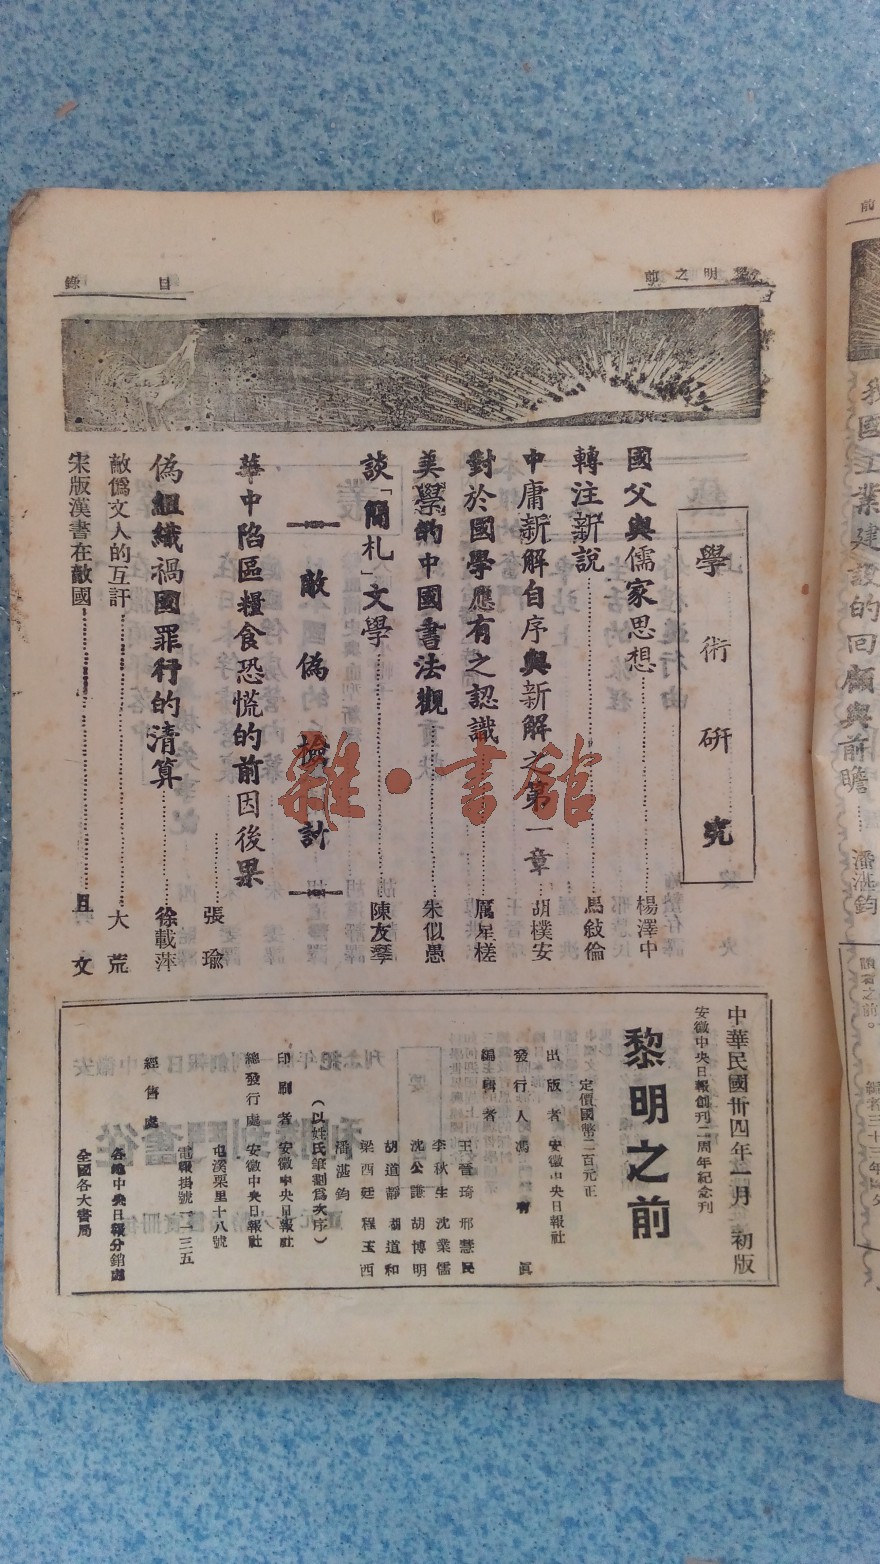 黎明之前
目錄
學術研究
國父與儒家思想 楊澤中
轉注新說 馬敍倫
中庸新解自序與新解之第一章 胡樸安
對於國學應有之認識 厲星槎
美學的中國書法觀 朱似愚
談「簡札」文學 陳友琴
敵偽檢討
華中陷區糧食恐慌的前因後果 張瑜
偽組織禍國罪行的清算 徐載萍
敵偽文人的互訐 大荒
宋版漢書在敵國 且文
中華民國卅四年一月初版
安徽中央日報創刊二周年紀念刊
黎明之前
定價國幣二百元正
出版者 安徽中央日報社
發行人 馮有真
編輯者
王晉琦 邢慧民
李秋生 沈業儒
沈公謙 胡博明
胡道靜 胡道和
梁西廷 程玉西
潘湛鈞
（以姓氏筆劃為次序）
印刷者 安徽中央日報社
總發行處 安徽中央日報社
屯溪栗里十八號
電報掛號一一三五
經售處
各地中央日報分銷處
全國各大書局
我國工業建設的回顧與前瞻 潘湛鈞
雜·書館